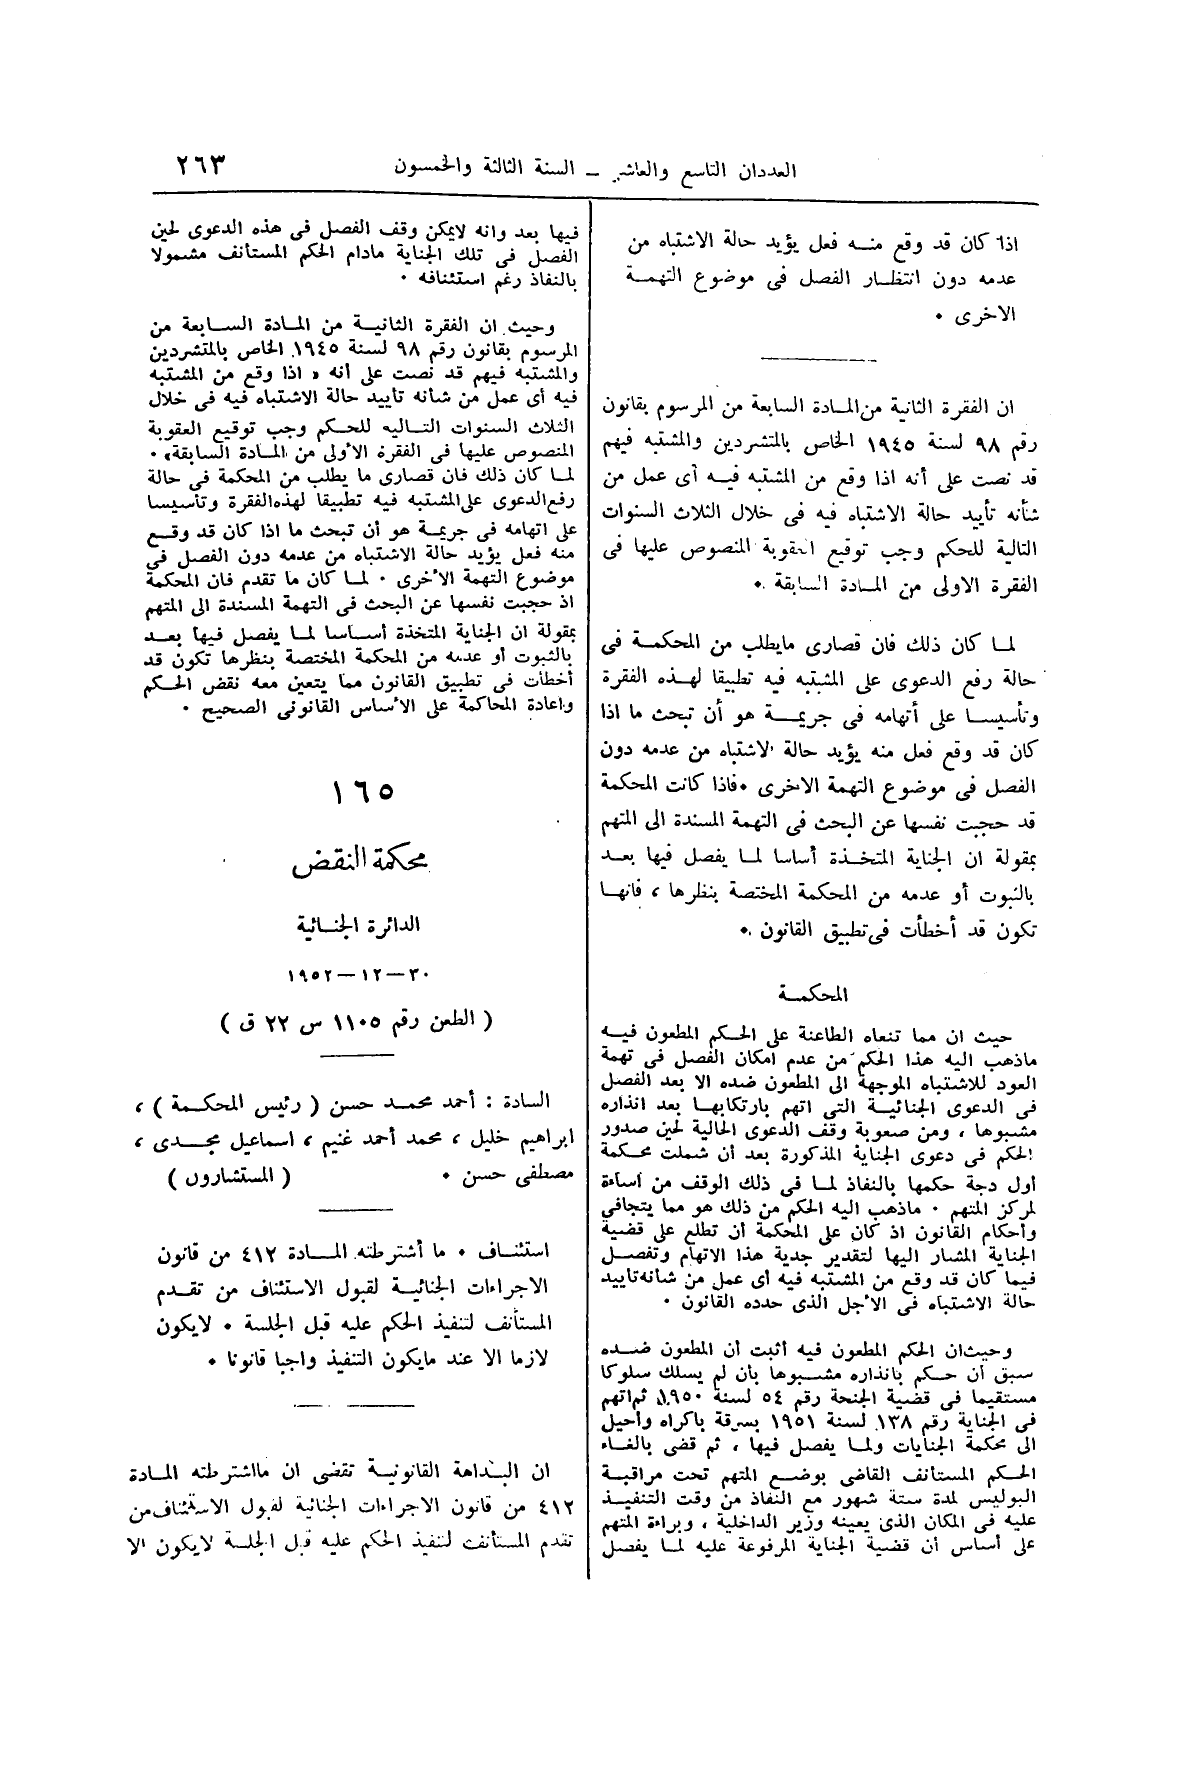 العددان التاسع والعاشر ــ السنة الثالثة والخمسون
٢٦٣
اذا كان قد وقع منه فعل يؤيد حالة الاشتباه من
عدمه دون انتظار الفصل فى موضوع التهمة
الاخرى ٠
ان الفقرة الثانية من المادة السابعة من المرسوم بقانون
رقم ٩٨ لسنة ١٩٤٥ الخاص بالمتشردين والمشتبه فيهم
قد نصت على أنه اذا وقع من المشتبه فيه أى عمل من
شأنه تأيد حالة الاشتباه فيه فى خلال الثلاث السنوات
التالية للحكم وجب توقيع العقوبة المنصوص عليها فى
الفقرة الاولى من المادة السابقة ٠
لما كان ذلك فان قصارى مايطلب من المحكمة فى
حالة رفع الدعوى على المشتبه فيه تطبيقا لهذه الفقرة
وتأسيسا على أتهامه فى جريمة هو أن تبحث ما اذا
كان قد وقع فعل منه يؤيد حالة الاشتباه من عدمه دون
الفصل فى موضوع التهمة الاخرى ٠ فاذا كانت المحكمة
قد حجبت نفسها عن البحث فى التهمة المسندة الى المتهم
بمقولة ان الجناية المتخذة أساسا لما يفصل فيها بعد
بالثبوت أو عدمه من المحكمة المختصة بنظرها ، فانها
تكون قد أخطأت فى تطبيق القانون ٠
المحكمة
حيث ان مما تنعاه الطاعنة على الحكم المطعون فيه
ماذهب اليه هذا الحكم من عدم امكان الفصل فى تهمة
العود للاشتباه الموجهة الى المطعون ضده الا بعد الفصل
فى الدعوى الجنائية التى اتهم بارتكابها بعد انذاره
مشبوها ، ومن صعوبة وقف الدعوى الحالية لحين صدور
الحكم فى دعوى الجناية المذكورة بعد أن شملت محكمة
أول دجة حكمها بالنفاذ لما فى ذلك الوقف من أساءة
لمركز المتهم ٠ ماذهب اليه الحكم من ذلك هو مما يتجافى
وأحكام القانون اذ كان على المحكمة أن تطلع على قضية
الجناية المشار اليها لتقدير جدية هذا الاتهام وتفصل
فيما كان قد وقع من المشتبه فيه أى عمل من شأنه تاييد
حالة الاشتباه فى الأجل الذى حدده القانون ٠
وحيث ان الحكم المطعون فيه أثبت أن المطعون ضده
سبق أن حكم بانذاره مشبوها بأن لم يسلك سلوكا
مستقيما فى قضية الجنحة رقم ٥٤ لسنة ١٩٥٠ ثم اتهم
فى الجناية رقم ١٣٨ لسنة ١٩٥١ بسرقة باكراه وأحيل
الى محكمة الجنايات ولما يفصل فيها ، ثم قضى بالغاء
الحكم المستأنف القاضى بوضع المتهم تحت مراقبة
البوليس لمدة ستة شهور مع النفاذ من وقت التنفيذ
عليه فى المكان الذى يعينه وزير الداخلية ، وبراءة المتهم
على أساس أن قضية الجناية المرفوعة عليه لما يفصل
فيها بعد وانه لايمكن وقف الفصل فى هذه الدعوى لحين
الفصل فى تلك الجناية مادام الحكم المستأنف مشمولا
بالنفاذ رغم استئنافه ٠
وحيث ان الفقرة الثانية من المادة السابعة من
المرسوم بقانون رقم ٩٨ لسنة ١٩٤٥ الخاص بالمتشردين
والمشتبه فيهم قد نصت على أنه « اذا وقع من المشتبه
فيه أى عمل من شأنه تأييد حالة الاشتباه فيه فى خلال
الثلاث السنوات التاليه للحكم وجب توقيع العقوبة
المنصوص عليها فى الفقرة الأولى من المادة السابقة» ٠
لما كان ذلك فان قصارى ما يطلب من المحكمة فى حالة
رفع الدعوى على المشتبه فيه تطبيقا لهذه الفقرة وتأسيسا
على اتهامه فى جريمة هو أن تبحث ما اذا كان قد وقع
منه فعل يؤيد حالة الاشتباه من عدمه دون الفصل فى
موضوع التهمة الأخرى ٠ لما كان ما تقدم فان المحكمة
اذ حجبت نفسها عن البحث فى التهمة المسندة الى المتهم
بمقولة ان الجناية المتخذة أساسا لما يفصل فيها بعد
بالثبوت أو عدمه من المحكمة المختصة بنظرها تكون قد
أخطأت فى تطبيق القانون مما يتعين معه نقض الحكم
واعادة المحاكمة على الأساس القانونى الصحيح ٠
١٦٥
محكمة النقض
الدائرة الجنائية
٣٠ – ١٢ – ١٩٥٢
( الطعن رقم ١١٠٥ س ٢٢ ق )
السادة : أحمد محمد حسن ( رئيس المحكمة ) ،
ابراهيم خليل ، محمد أحمد غنيم ، اسماعيل مجدى ،
مصطفى حسن ٠ ( المستشارون )
استئناف ٠ ما أشترطته المادة ٤١٢ من قانون
الاجراءات الجنائية لقبول الاستئناف من تقدم
المستأنف لتنفيذ الحكم عليه قبل الجلسة ٠ لايكون
لازما الا عند مايكون التنفيذ واجبا قانونا ٠
ان البداهة القانونية تقضى ان مااشترطته المادة
٤١٢ من قانون الاجراءات الجنائية لقبول الاستئناف من
تقدم المستأنف لتنفيذ الحكم عليه قبل الجلسة لايكون الا